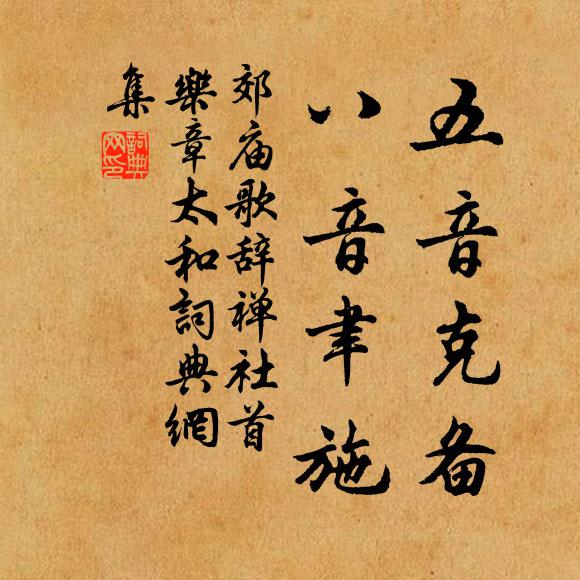 五音克备
八音聿施
郊庙歌辞禅社首
樂章太和詞典網
集
詞典
网印